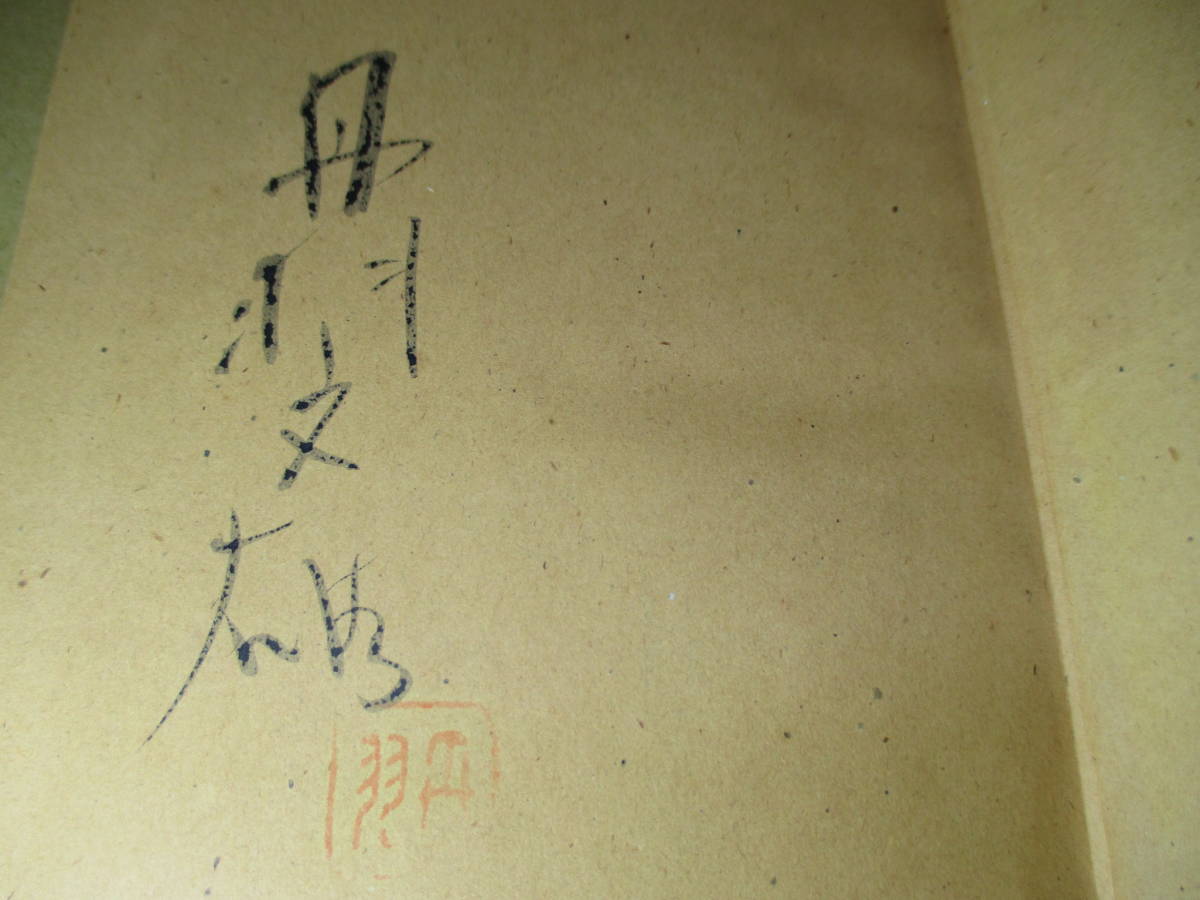 丹羽文雄
丹羽